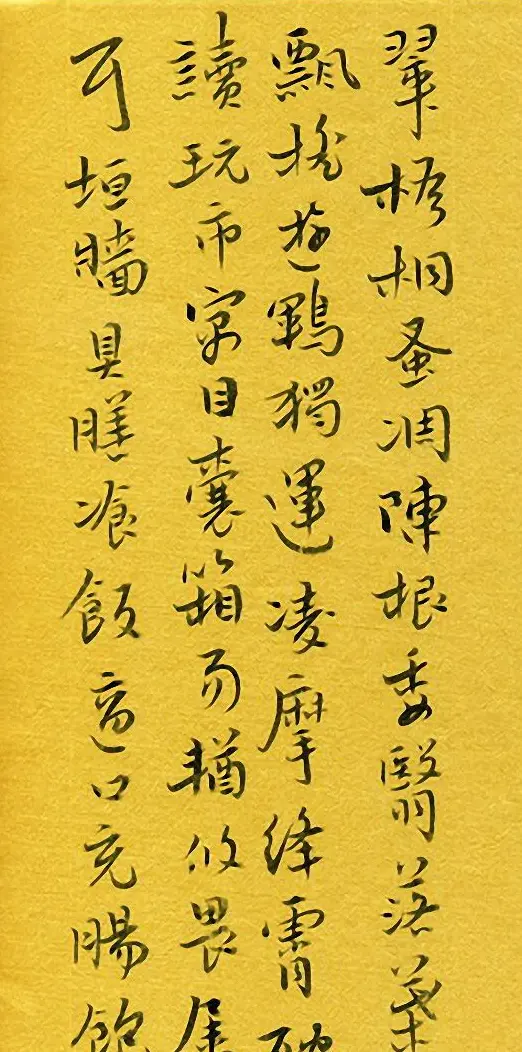 翠梧桐蚤凋陳根委翳落葉
飄搖遊鵾獨運凌摩絳霄
讀玩市寓目囊箱易輶攸畏屬
耳垣牆具膳飡飯適口充腸飽